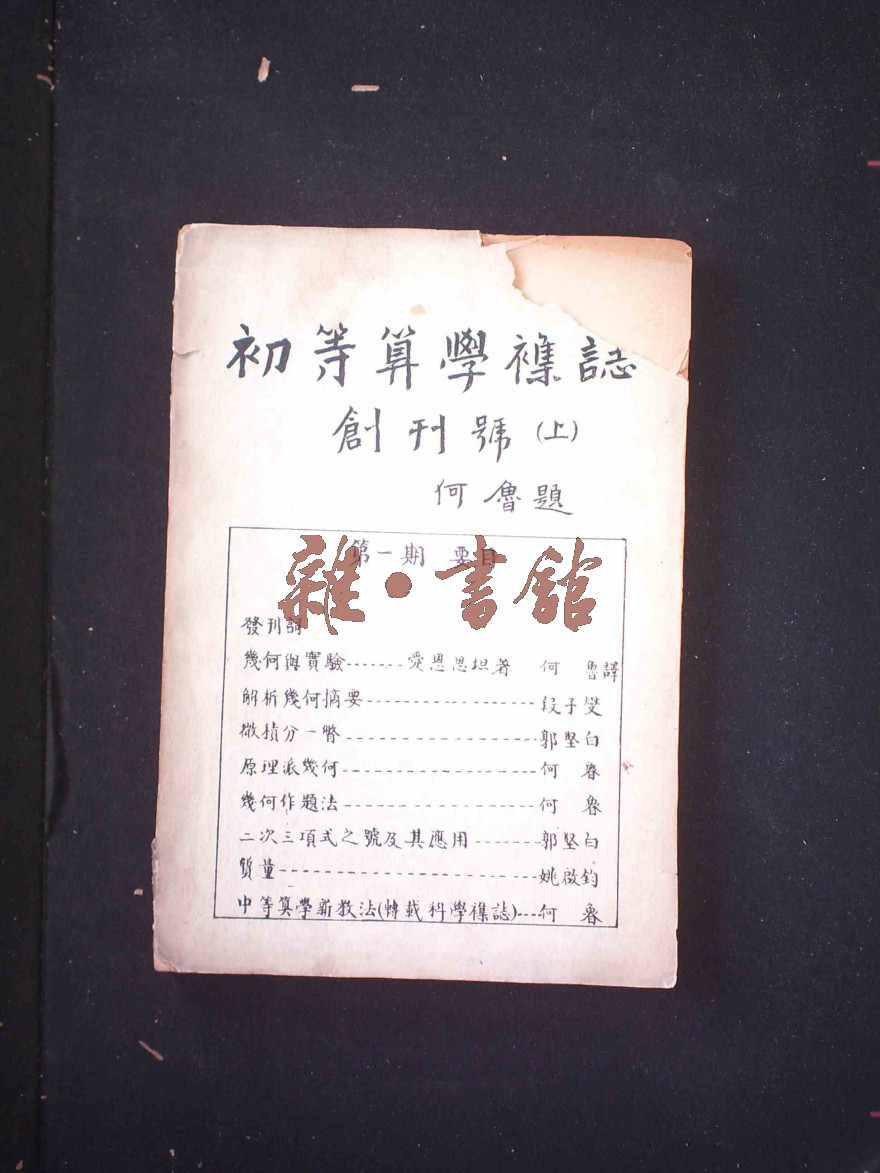 初等算學襍誌
創刊號（上）
何魯題
第一期 要目
雜·書館
發刊詞
幾何與實驗-------愛恩思坦著 何 魯譯
解析幾何摘要------------------段子燮
微積分一瞥--------------------郭堅白
原理派幾何--------------------何 魯
幾何作題法--------------------何 魯
二次三項式之號及其應用-------郭堅白
質量--------------------------姚啟鈞
中等算學新教法(轉載科學襍誌)---何 魯